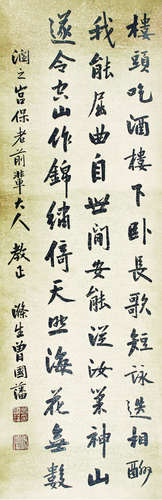 樓頭吃酒樓下卧長歌短詠迭相酬
我能屈曲自世間安能從汝巢神山
遂令空山作錦繡倚天照海花無數
之宮保老前輩大人教正 滌生曾國藩